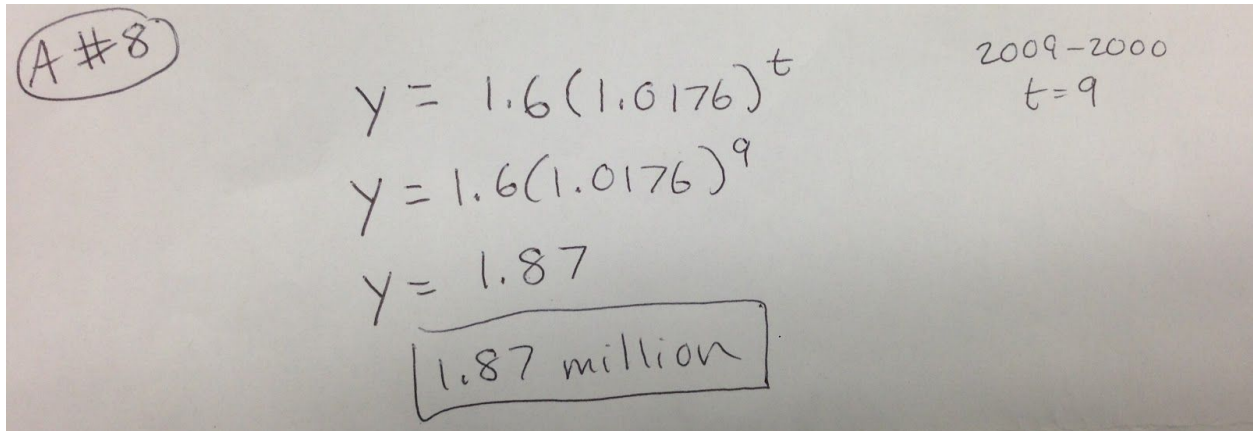 A #8
y = 1.6(1.0176)^t
2009-2000
t=9
y = 1.6(1.0176)^9
y = 1.87
1.87 million